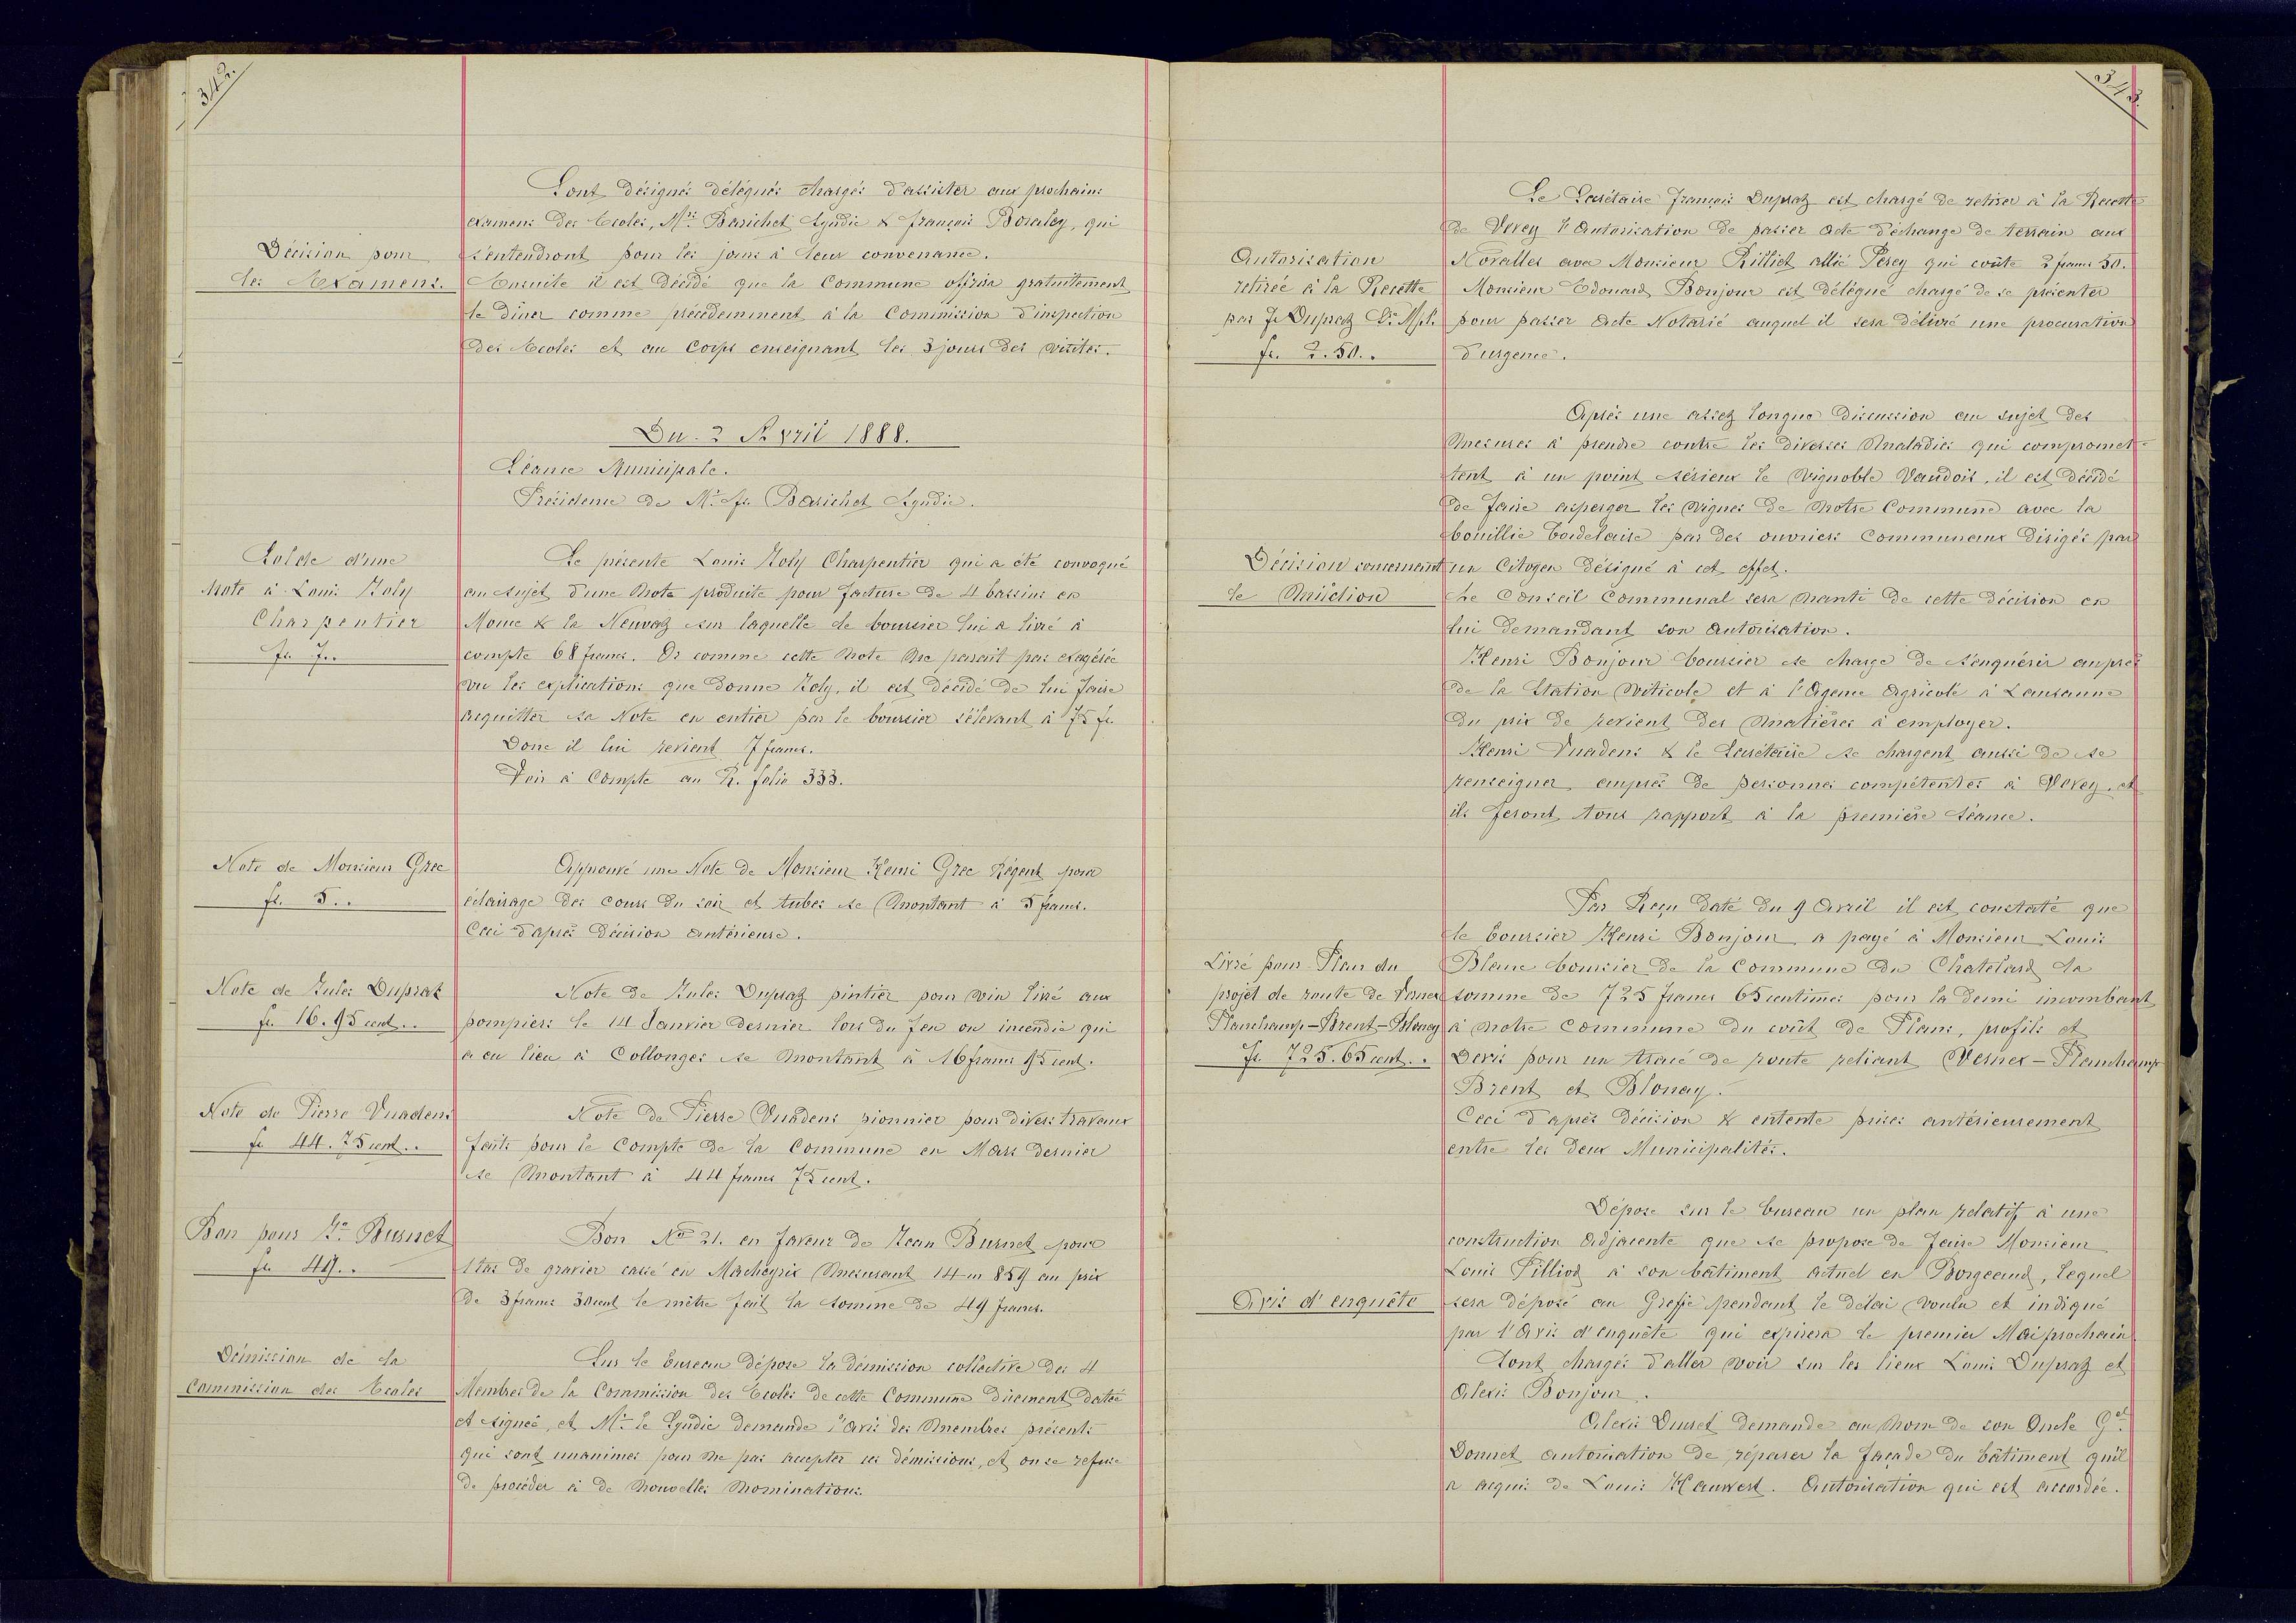 342.
Sont désignés délégués chargés d'assister aux prochains
examens des Ecoles, Mrs Barichet Syndic & François Bovaley, qui
Décision pour
s'entendront pour les jours à leur convenance.
les Examens.
Ensuite il est décidé que la Commune offrira gratuitement
le dîner comme précédemment à la Commission d'inspection
des Ecoles et au Corps enseignant les 3 jours des visites.
Du 2 Avril 1888.
Séance Municipale.
Présidence de Mr. fs. Barichet Syndic.
Solde d'une
Note à Louis Joly
Charpentier
fr. 7..
Se présente Louis Joly Charpentier qui a été convoqué
au sujet d'une Note produite pour facture de 4 bassins en
& la Neuvaz sur laquelle le boursier lui a livré à
compte 68 francs. Or comme cette Note ne paraît pas exagérée
vu les explications que donne Joly, il est décidé de lui faire
acquitter sa Note en entier par le boursier s'élevant à 75 fr.
Donc il lui revient 7 francs.
Voir à Compte au R. folio 333.
Note de Monsieur Grec
fr. 5..
Approuvé une Note de Monsieur Henri Grec Régent pour
éclairage des cours du soir et tubes se montant à 5 francs.
Ceci d'après décision antérieure.
Note de Jules Dupraz
fr. 16.95 cent..
Note de Jules Dupraz pintier pour vin livré aux
pompiers le 14 Janvier dernier lors du feu ou incendie qui
a eu lieu à Collonges se montant à 16 francs 95 cent.
Note de Pierre Vuadens
fr. 44.75 cent..
Note de Pierre Vuadens pionnier pour divers travaux
faits pour le Compte de la Commune en Mars dernier
se montant à 44 francs 75 cent.
Bon pour Jn Burnet
fr. 49..
Bon No 21. en faveur de Jean Burnet pour
1 tas de gravier cassé en mesurant 14 m 859 au prix
de 3 francs 30 cent le mètre fait la somme de 49 francs.
Démission de la
Commission des Ecoles
Sur le bureau dépose la démission collective des 4
Membres de la Commission des Ecoles de cette Commune dûement datée
et signée, et Mr. le Syndic demande l'avis des membres présents
qui sont unanimes pour ne pas accepter ces démissions, et on se refuse
de procéder à de nouvelles nominations.
343.
Le Secrétaire François Dupraz est chargé de retirer à la Recette
de Vevey l'Autorisation de passer acte d'échange de terrain aux
Autorisation
retirée à la Recette
par fs Dupraz
fr. 2.50..
Novalles avec Monsieur Rilliet allié Perey qui coûte 2 francs 50.
Monsieur Edouard Bonjour est délégué chargé de se présenter
pour passer acte Notarié auquel il sera délivré une procuration
d'urgence.
Après une assez longue discussion au sujet des
mesures à prendre contre les diverses maladies qui compromet-
tent à un point sérieux le vignoble Vaudois, il est décidé
de faire asperger les vignes de notre Commune avec la
bouillie bordelaise par des ouvriers Communaux dirigés par
Décision concernant
le Mildiou
un Citoyen désigné à cet effet.
Le Conseil Communal sera nanti de cette décision en
lui demandant son autorisation.
Henri Bonjour boursier se charge de s'enquérir auprès
de la Station viticole et à l'Agence Agricole à Lausanne
du prix de revient des matières à employer.
Henri Vuadens & le Secrétaire se chargent aussi de se
renseigner auprès de personnes compétentes à Vevey, et
ils feront tous rapport à la première séance.
Par Reçu daté du 9 Avril il est constaté que
le boursier Henri Bonjour a payé à Monsieur Louis
Livré pour Plans du
projet de route de Vernex
Planchamp-Brent-Blonay
fr. 725.65 cent..
Blanc boursier de la Commune du Chatelard la
somme de 725 francs 65 centimes pour la demi incombant
à notre Commune du coût de Plans, profils et
Devis pour un tracé de route reliant Vernex-Planchamp
Brent et Blonay.
Ceci d'après décision & entente prises antérieurement
entre les deux Municipalités.
Dépose sur le bureau un plan relatif à une
construction adjacente que se propose de faire Monsieur
Louis Pilliod à son bâtiment actuel en Borgeaud, lequel
Avis d'enquête
sera déposé au Greffe pendant le délai voulu et indiqué
par l'Avis d'enquête qui expirera le premier Mai prochain
Sont chargés d'aller voir sur les lieux Louis Dupraz et
Alexis Bonjour.
Alexis Ducret demande au nom de son Oncle Gel
Donnet autorisation de réparer la façade du bâtiment qu'il
a acquis de Louis Hauwert. Autorisation qui est accordée.